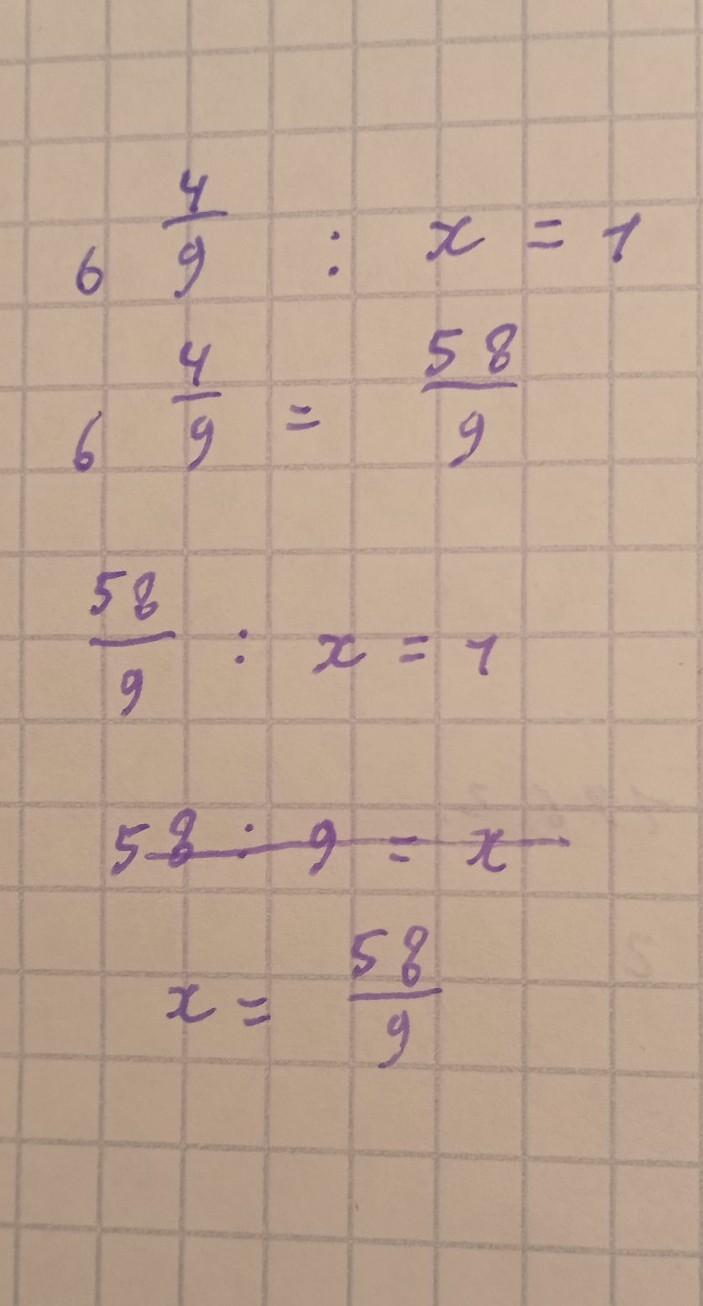 6 4/9 : x = 1
6 4/9 = 58/9
58/9 : x = 1
58 : 9 = x
x = 58/9